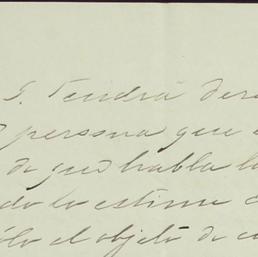 S. Tendrá dere
persona que
de que habla la
do lo estime c
ólo el objeto de co